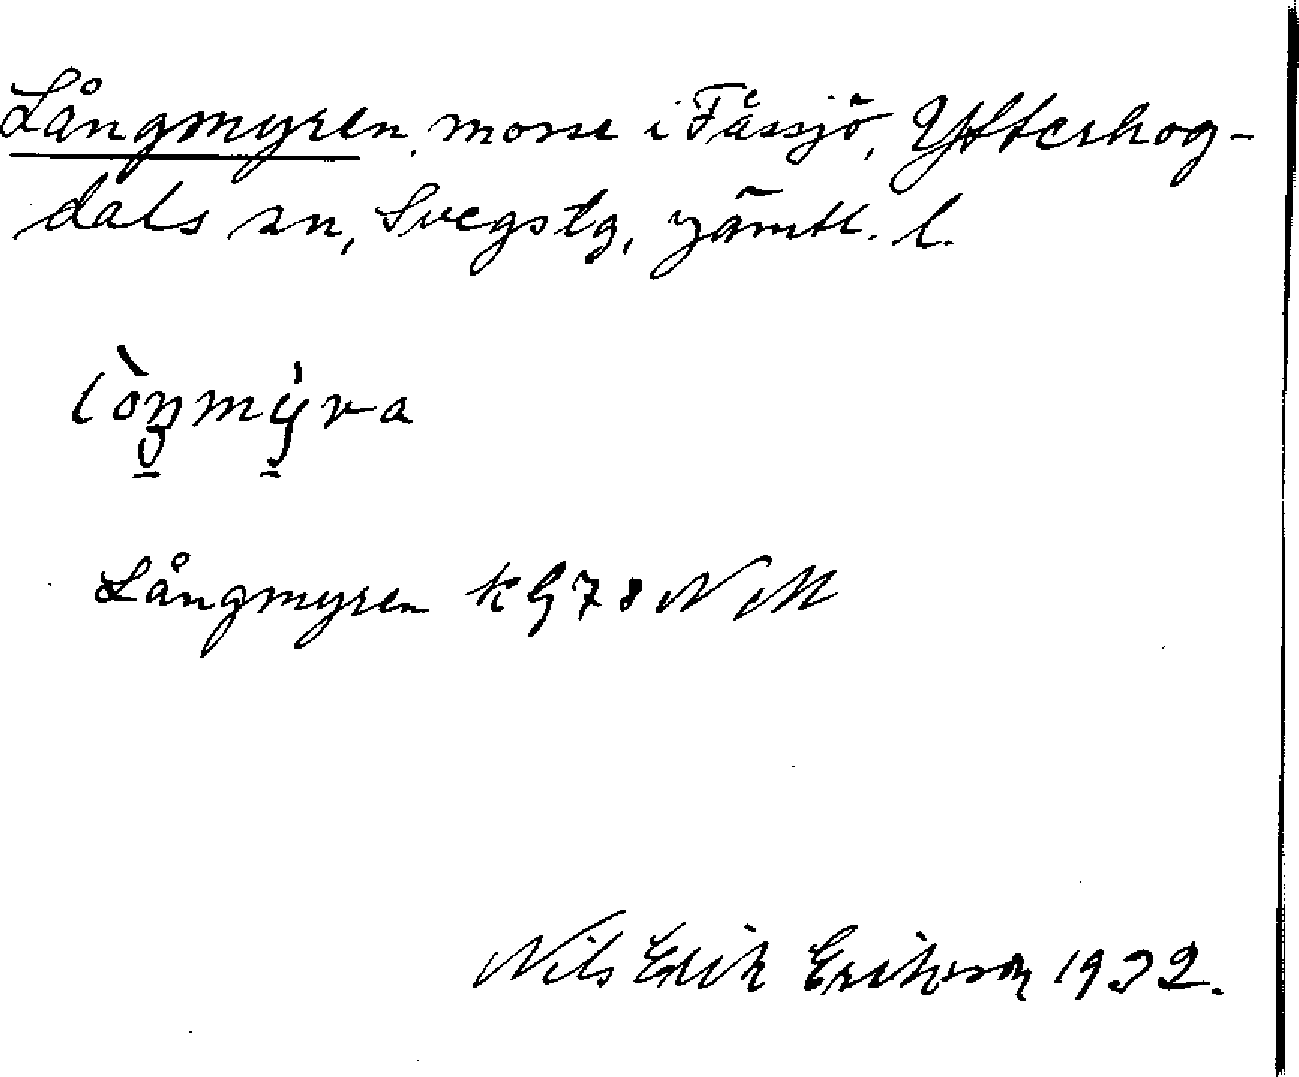 Långmyren, mosse i Fåssjö, Ytterhog-
dals sn, Svegs tg, Jämtl. l.
lòŋmy̆ra
Långmyren kG78 NM
Nils Erik Eriksson 1932.